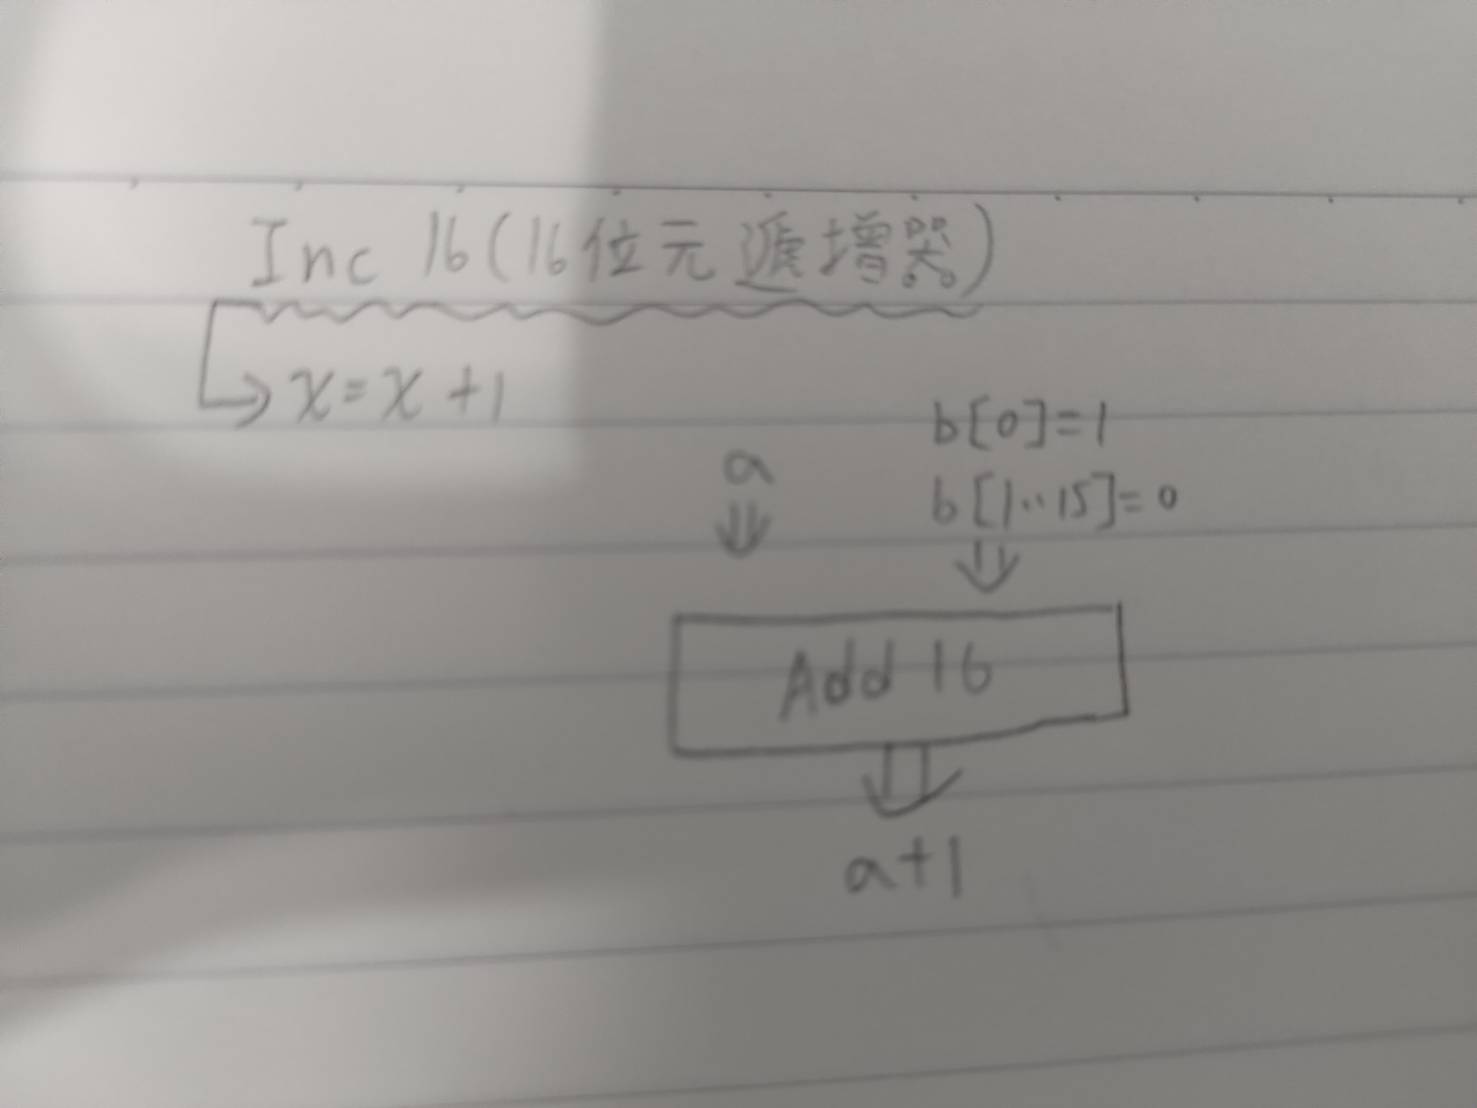 Inc 16(16位元遞增器)
x=x+1
a
b[0]=1
b[1..15]=0
Add 16
a+1